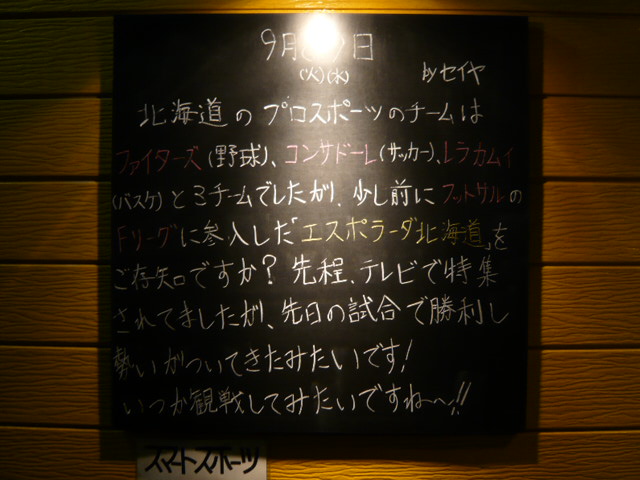 9月 日
(火)(水) byセイヤ
北海道のプロスポーツのチームは
ファイターズ(野球)、コンサドーレ(サッカー)、レラカムイ
(バスケ)と3チームでしたが、少し前にフットサルの
Fリーグに参入した「エスポラーダ北海道」を
ご存知ですか?先程、テレビで特集
されてましたが、先日の試合で勝利し
勢いがついてきたみたいです!
いつか観戦してみたいですね〜!!
スマートスポーツ